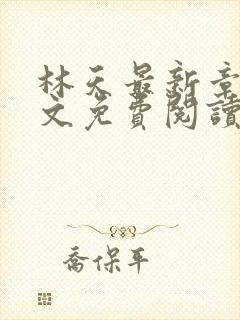 林天最新章
文免費閱讀
喬保平